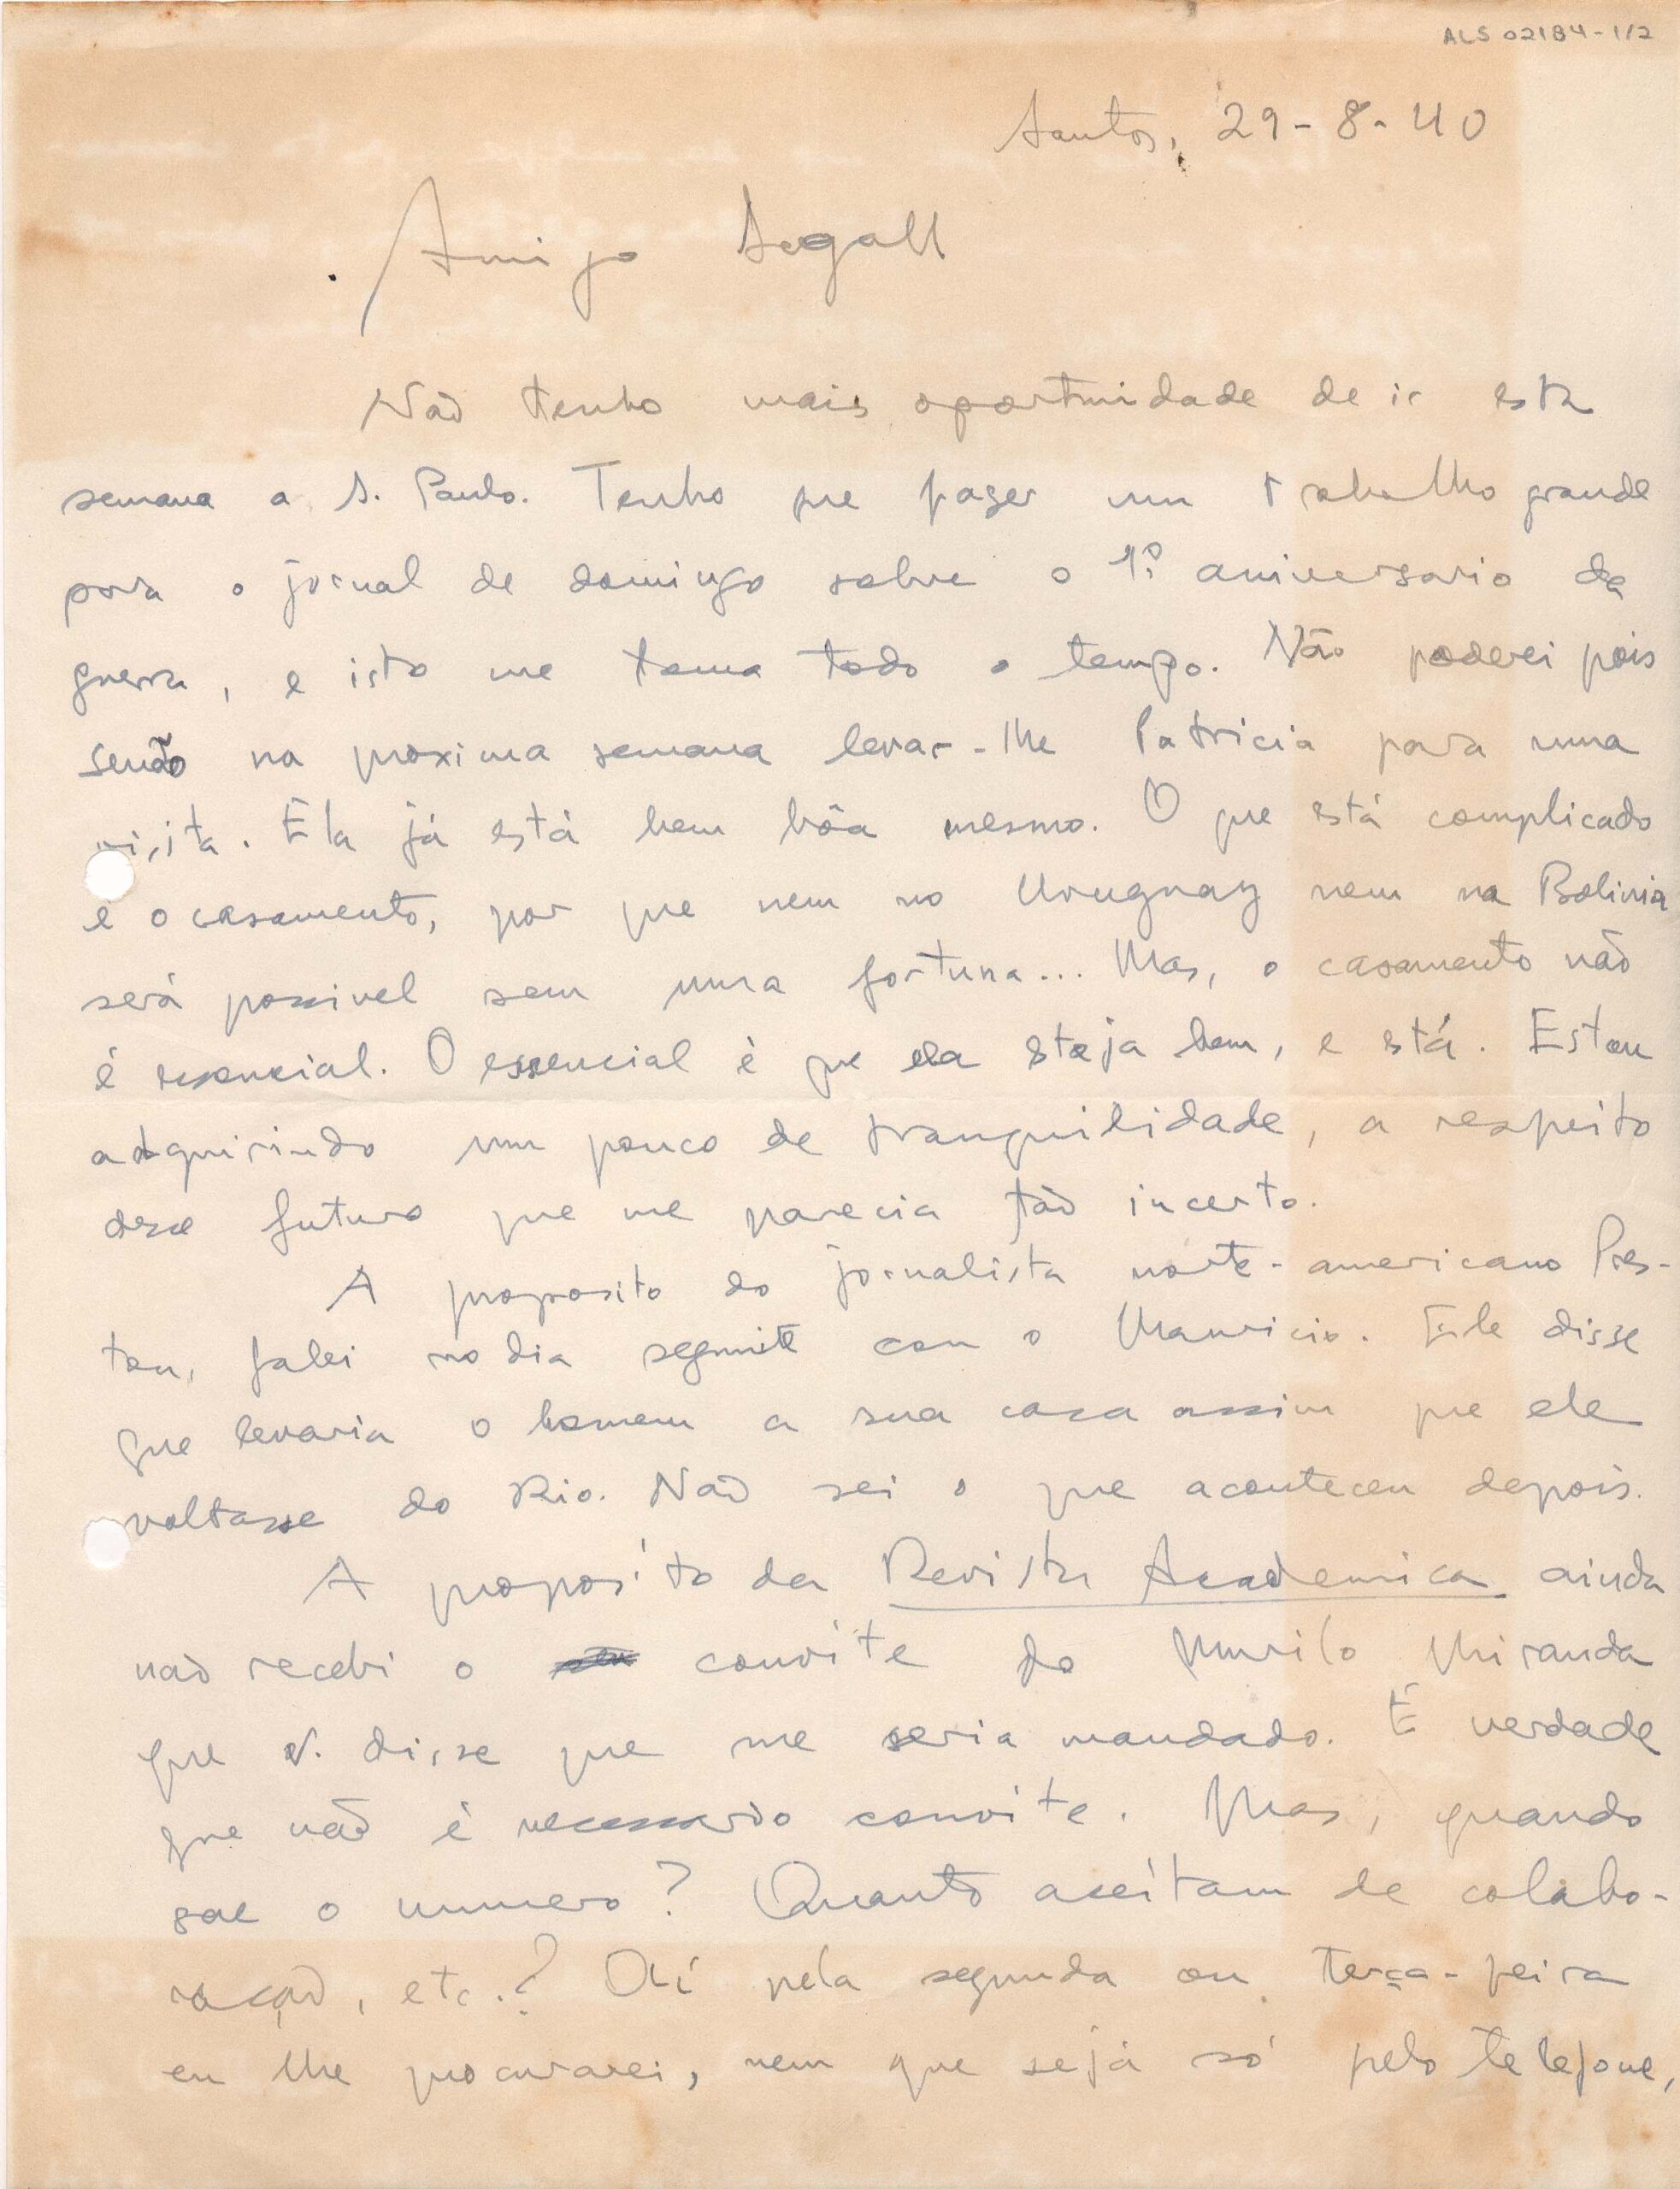 ALS 02184-1/2
Santos, 29-8-40
Amigo Segall
Não tenho mais oportunidade de ir esta
semana a S. Paulo. Tenho que fazer um trabalho grande
para o jornal de domingo sobre o 1º aniversario da
guerra, e isto me toma todo o tempo. Não poderei pois
senão na proxima semana levar-lhe Patricia para uma
visita. Ela já está bem bôa mesmo. O que está complicado
é o casamento, por que nem no Uruguay nem na Bolivia
será possivel sem uma fortuna... Mas, o casamento não
é essencial. O essencial é que ela esteja bem, e está. Estou
adquirindo um pouco de tranquilidade, a respeito
desse futuro que me parecia tão incerto.
A proposito do jornalista norte-americano Pres-
ton, falei no dia seguinte com o Mauricio. Ele disse
que levaria o homem a sua casa assim que ele
voltasse do Rio. Não sei o que aconteceu depois.
A proposito da Revista Academica ainda
não recebi o convite do Murilo Miranda
que v. disse que me seria mandado. É verdade
que não é necessario convite. Mas, quando
sae o numero? Quanto aceitam de colabo-
ração, etc.? Ali pela segunda ou terça-feira
eu lhe procurarei, nem que seja só pelo telefone,